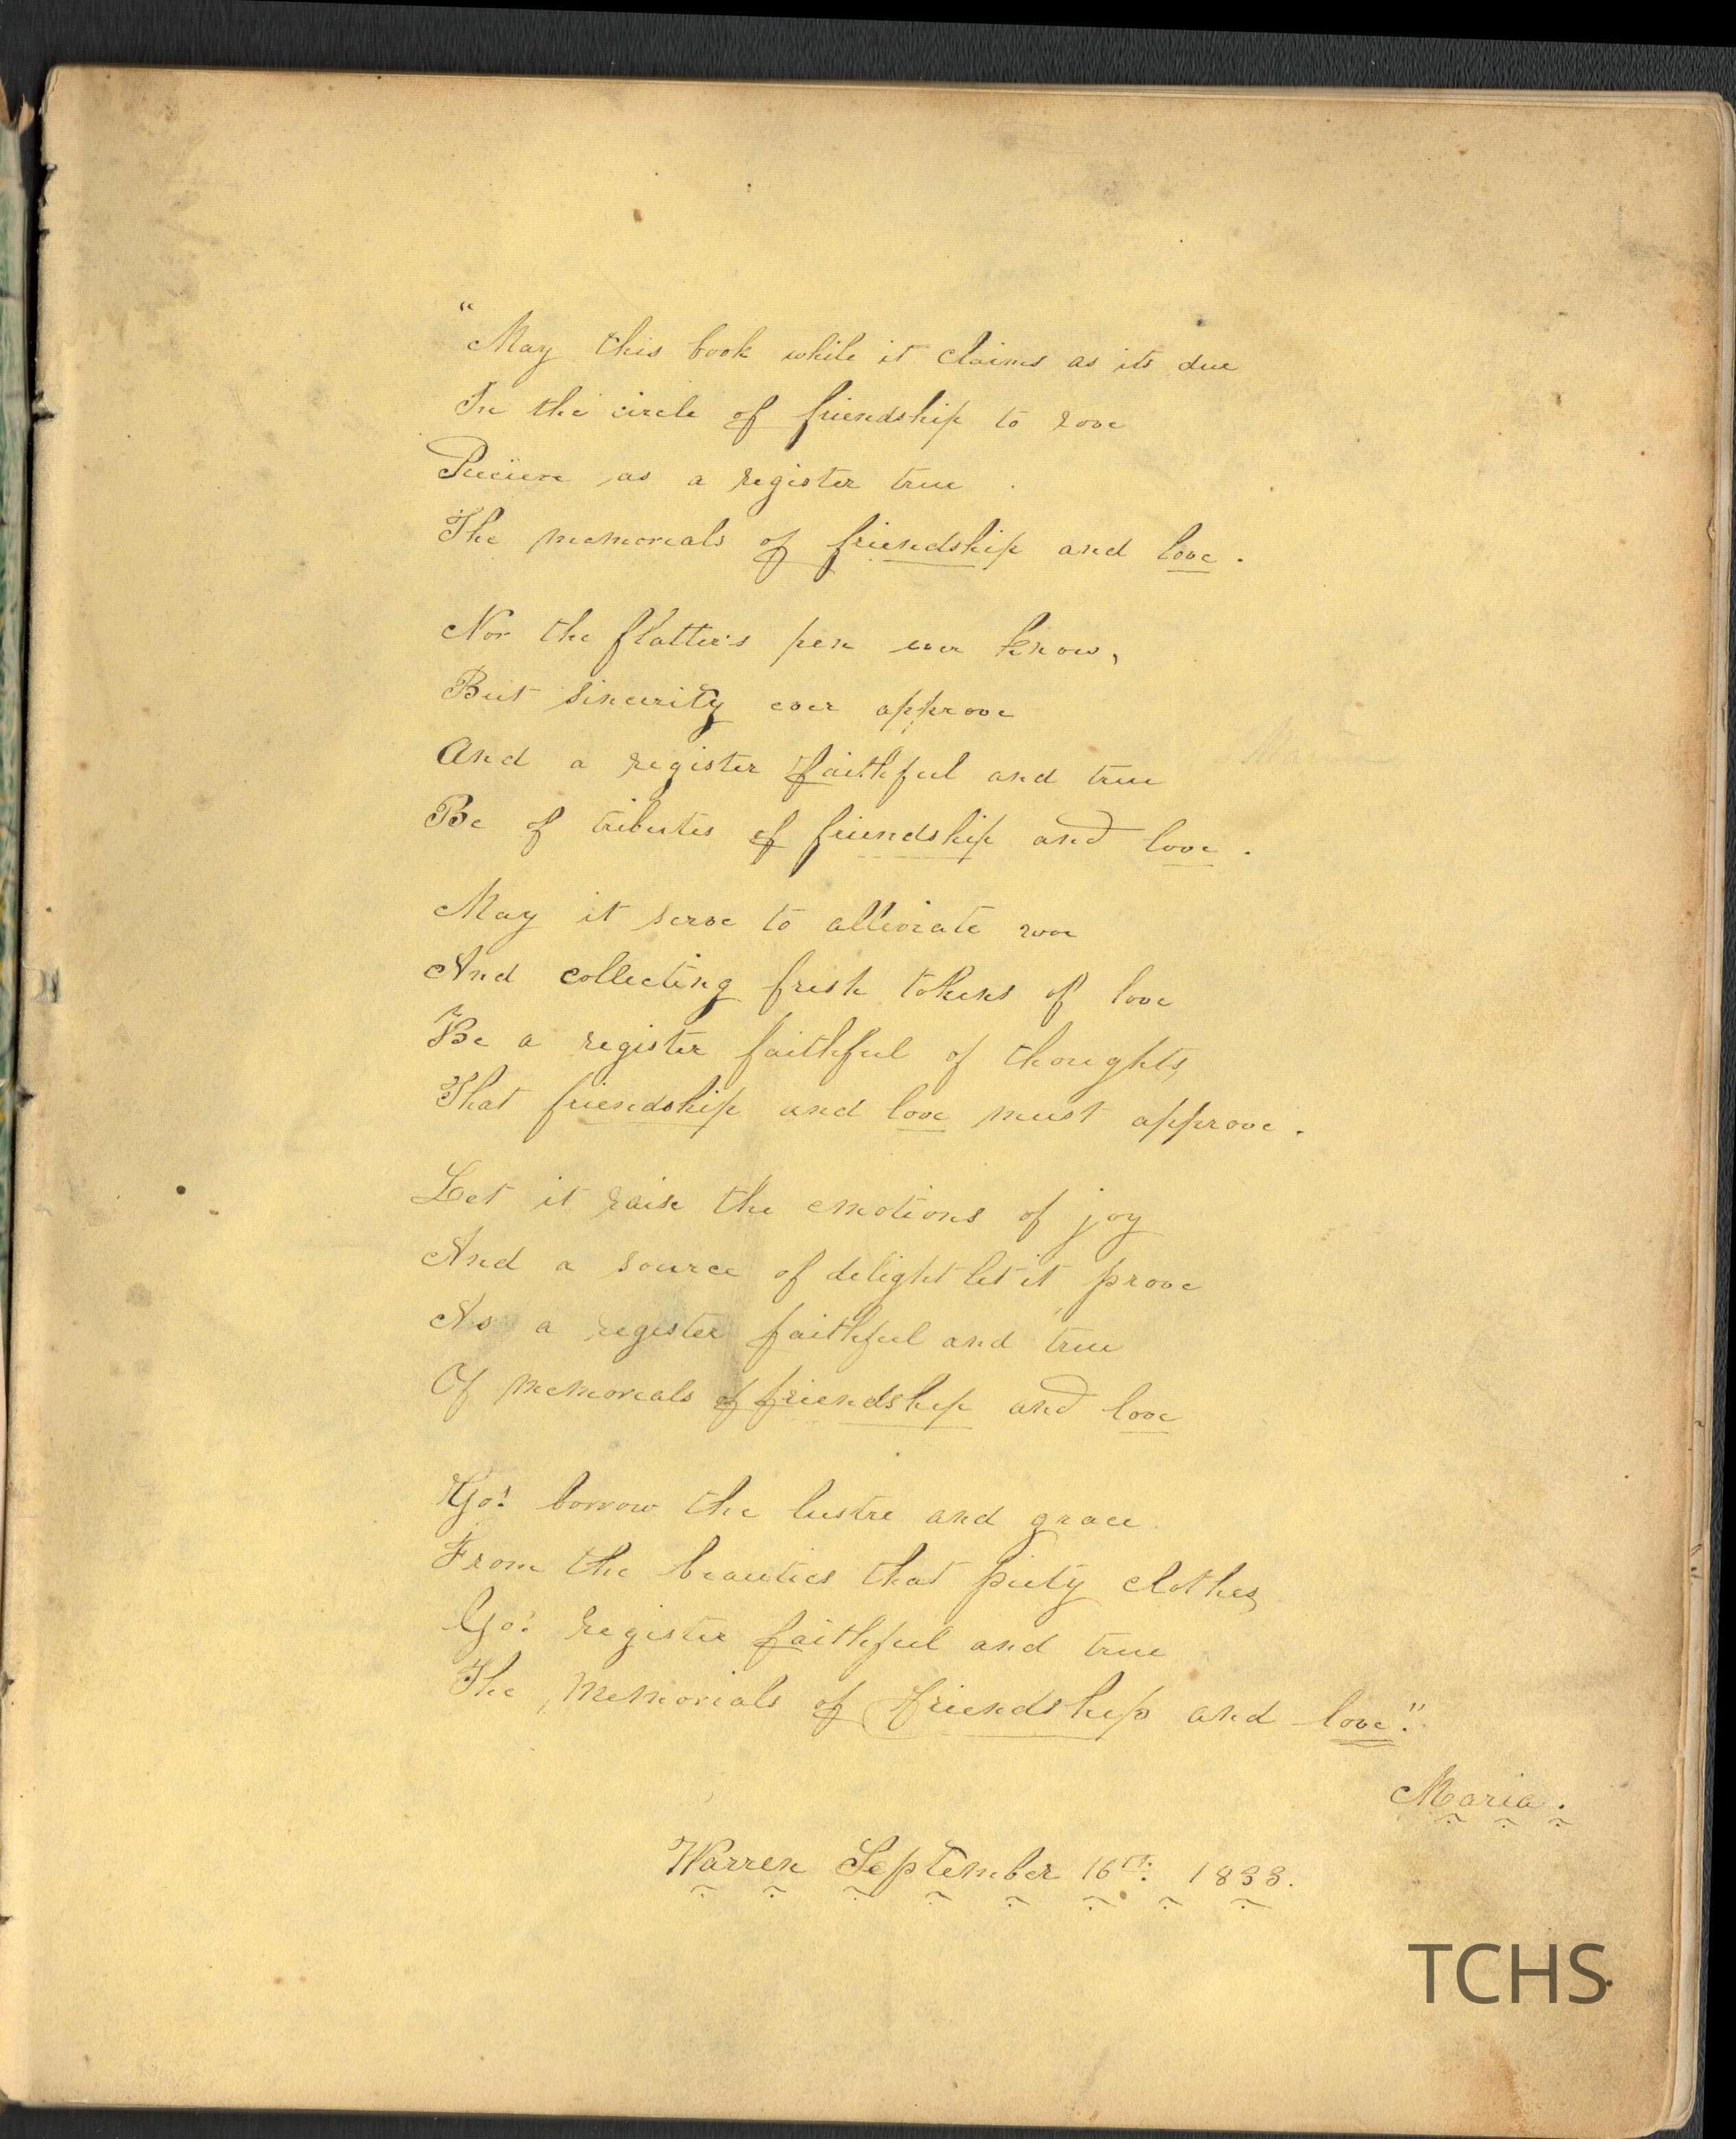 "May this book while it claims as its due
In the circle of friendship to rove
Receive as a register true
The memorials of friendship and love.
Nor the flatter's pen ever know,
But sincerity ever approve
And a register faithful and true
Be of tributes of friendship and love.
May it serve to alleviate woe
And collecting fresh tokens of love
Be a register faithful of thoughts,
That friendship and love must approve.
Let it raise the emotions of joy
And a source of delight let it prove
As a register faithful and true
Of memorials of friendship and love
Go! borrow the lustre and grace
From the beauties that piety clothes,
Go! register faithful and true
The memorials of friendship and love."
Maria.
Warren September 16th. 1833.
TCHS